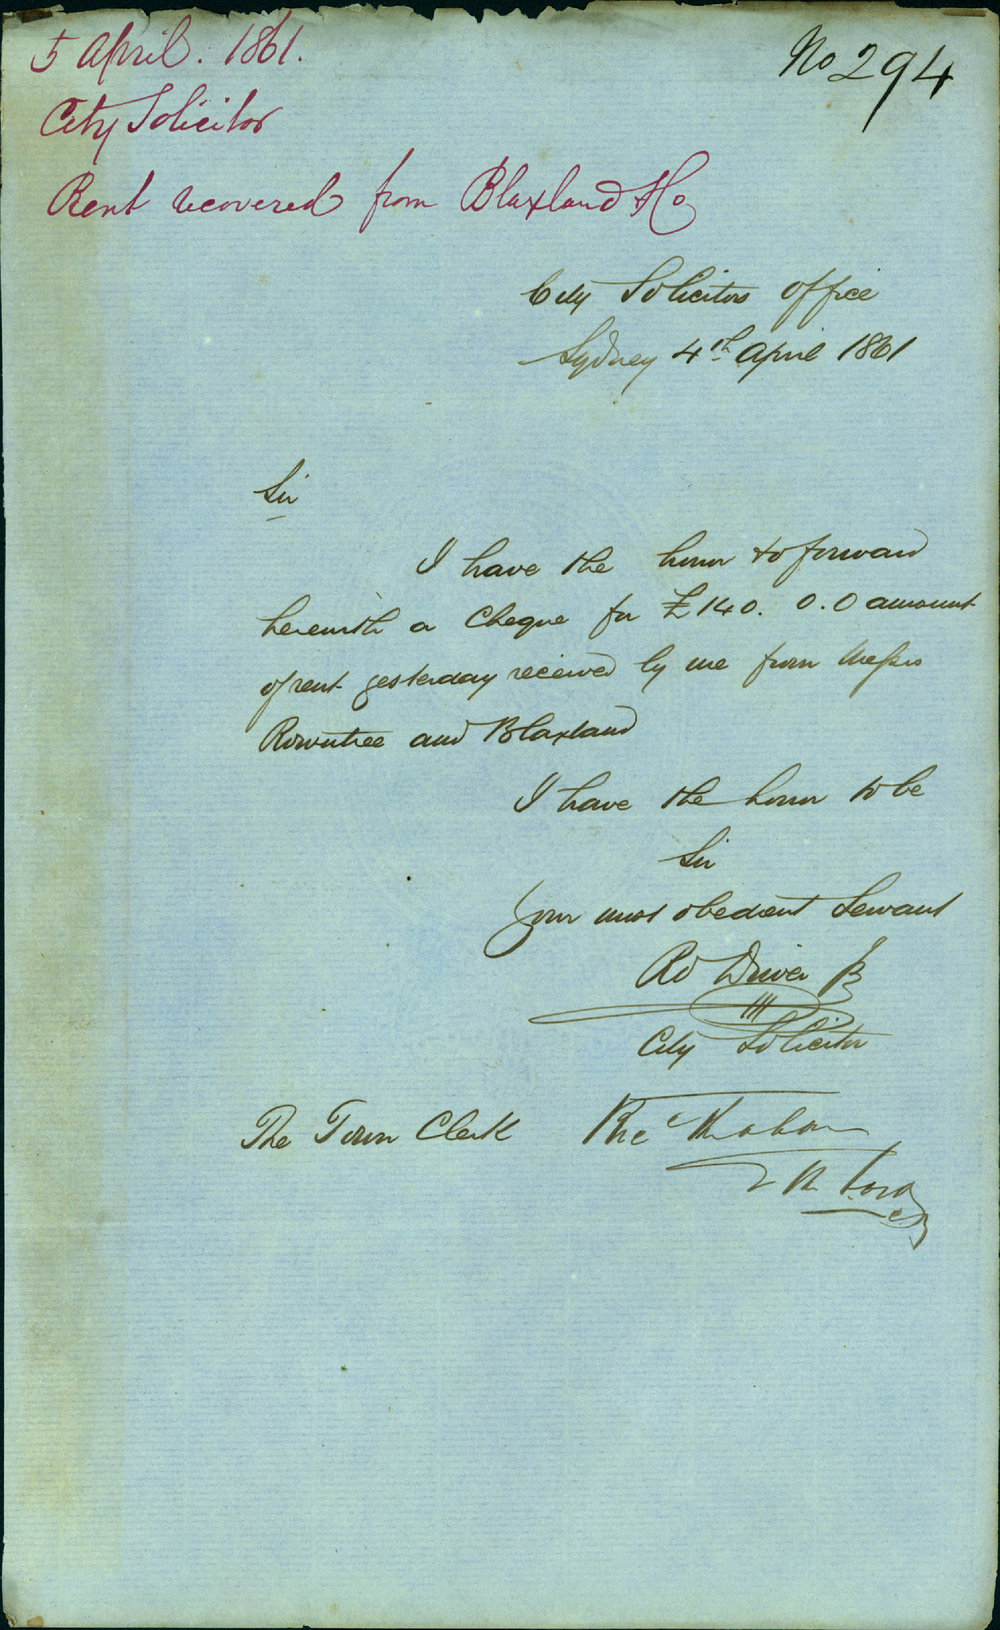 5 April. 1861.
No 294
City Solicitor
Rent recovered from Blaxland & Co
City Solicitors Office
Sydney 4th April 1861
Sir
I have the honor to forward
herewith a Cheque for £140. 0. 0 amount
of rent yesterday received by me from Messrs
Rowntree and Blaxland
I have the honor to be
Sir
Your most obedient Servant
Rd Driver Jr
City Solicitor
The Town Clerk